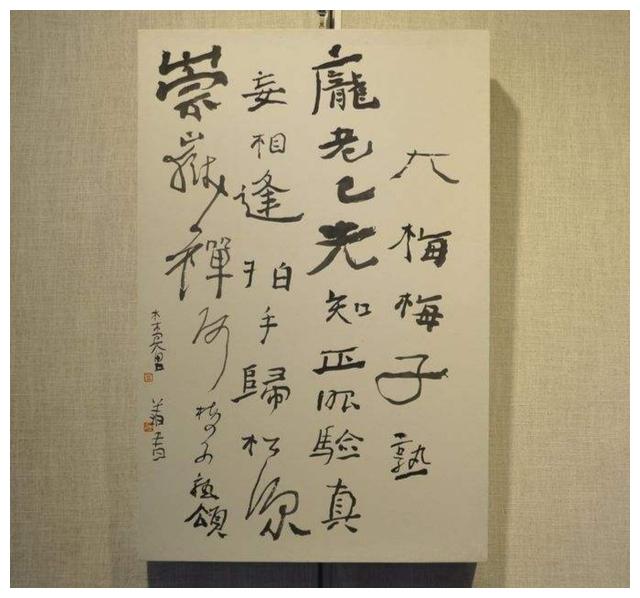 大梅梅子熟
龐老已先知正眼驗真
妄相逢拍手歸松源
崇嶽禪師梅子熟頌